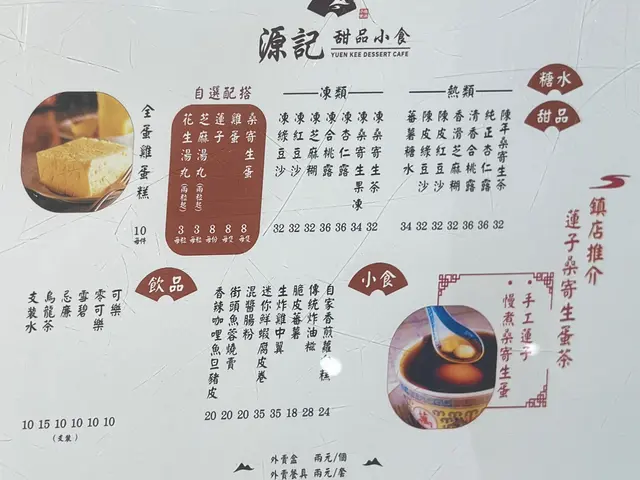 源記 甜品小食
YUEN KEE DESSERT CAFE
糖水
甜品
熱類
陳年桑寄生茶 32
純正杏仁露 36
清香合桃露 36
香滑芝麻糊 32
陳皮紅豆沙 32
陳皮綠豆沙 32
蕃薯糖水 32
凍類
凍桑寄生茶 32
凍桑寄生果凍 34
凍杏仁露 36
凍合桃露 36
凍芝麻糊 32
凍紅豆沙 32
凍綠豆沙 32
自選配搭
桑寄生蛋 8 每隻
雞蛋 8 每隻
蓮子 8 每份
芝麻湯丸(兩粒起) 3 每粒
花生湯丸(兩粒起) 3 每粒
全蛋雞蛋糕 10 每件
鎮店推介
蓮子桑寄生蛋茶
• 手工蓮子
• 慢煮桑寄生蛋
小食
自家香煎蘿蔔糕 24
傳統炸油糍 28
脆皮蕃薯 18
生炸雞中翼 35
迷你鮮蝦腐皮卷 35
混醬腸粉 20
街頭魚蓉燒賣 20
香辣咖哩魚旦豬皮 20
飲品
可樂 10
零可樂 10
雪碧 10
忌廉 10
烏龍茶 15 (支裝)
支裝水 10
外賣盒 兩元/個
外賣餐具 兩元/套